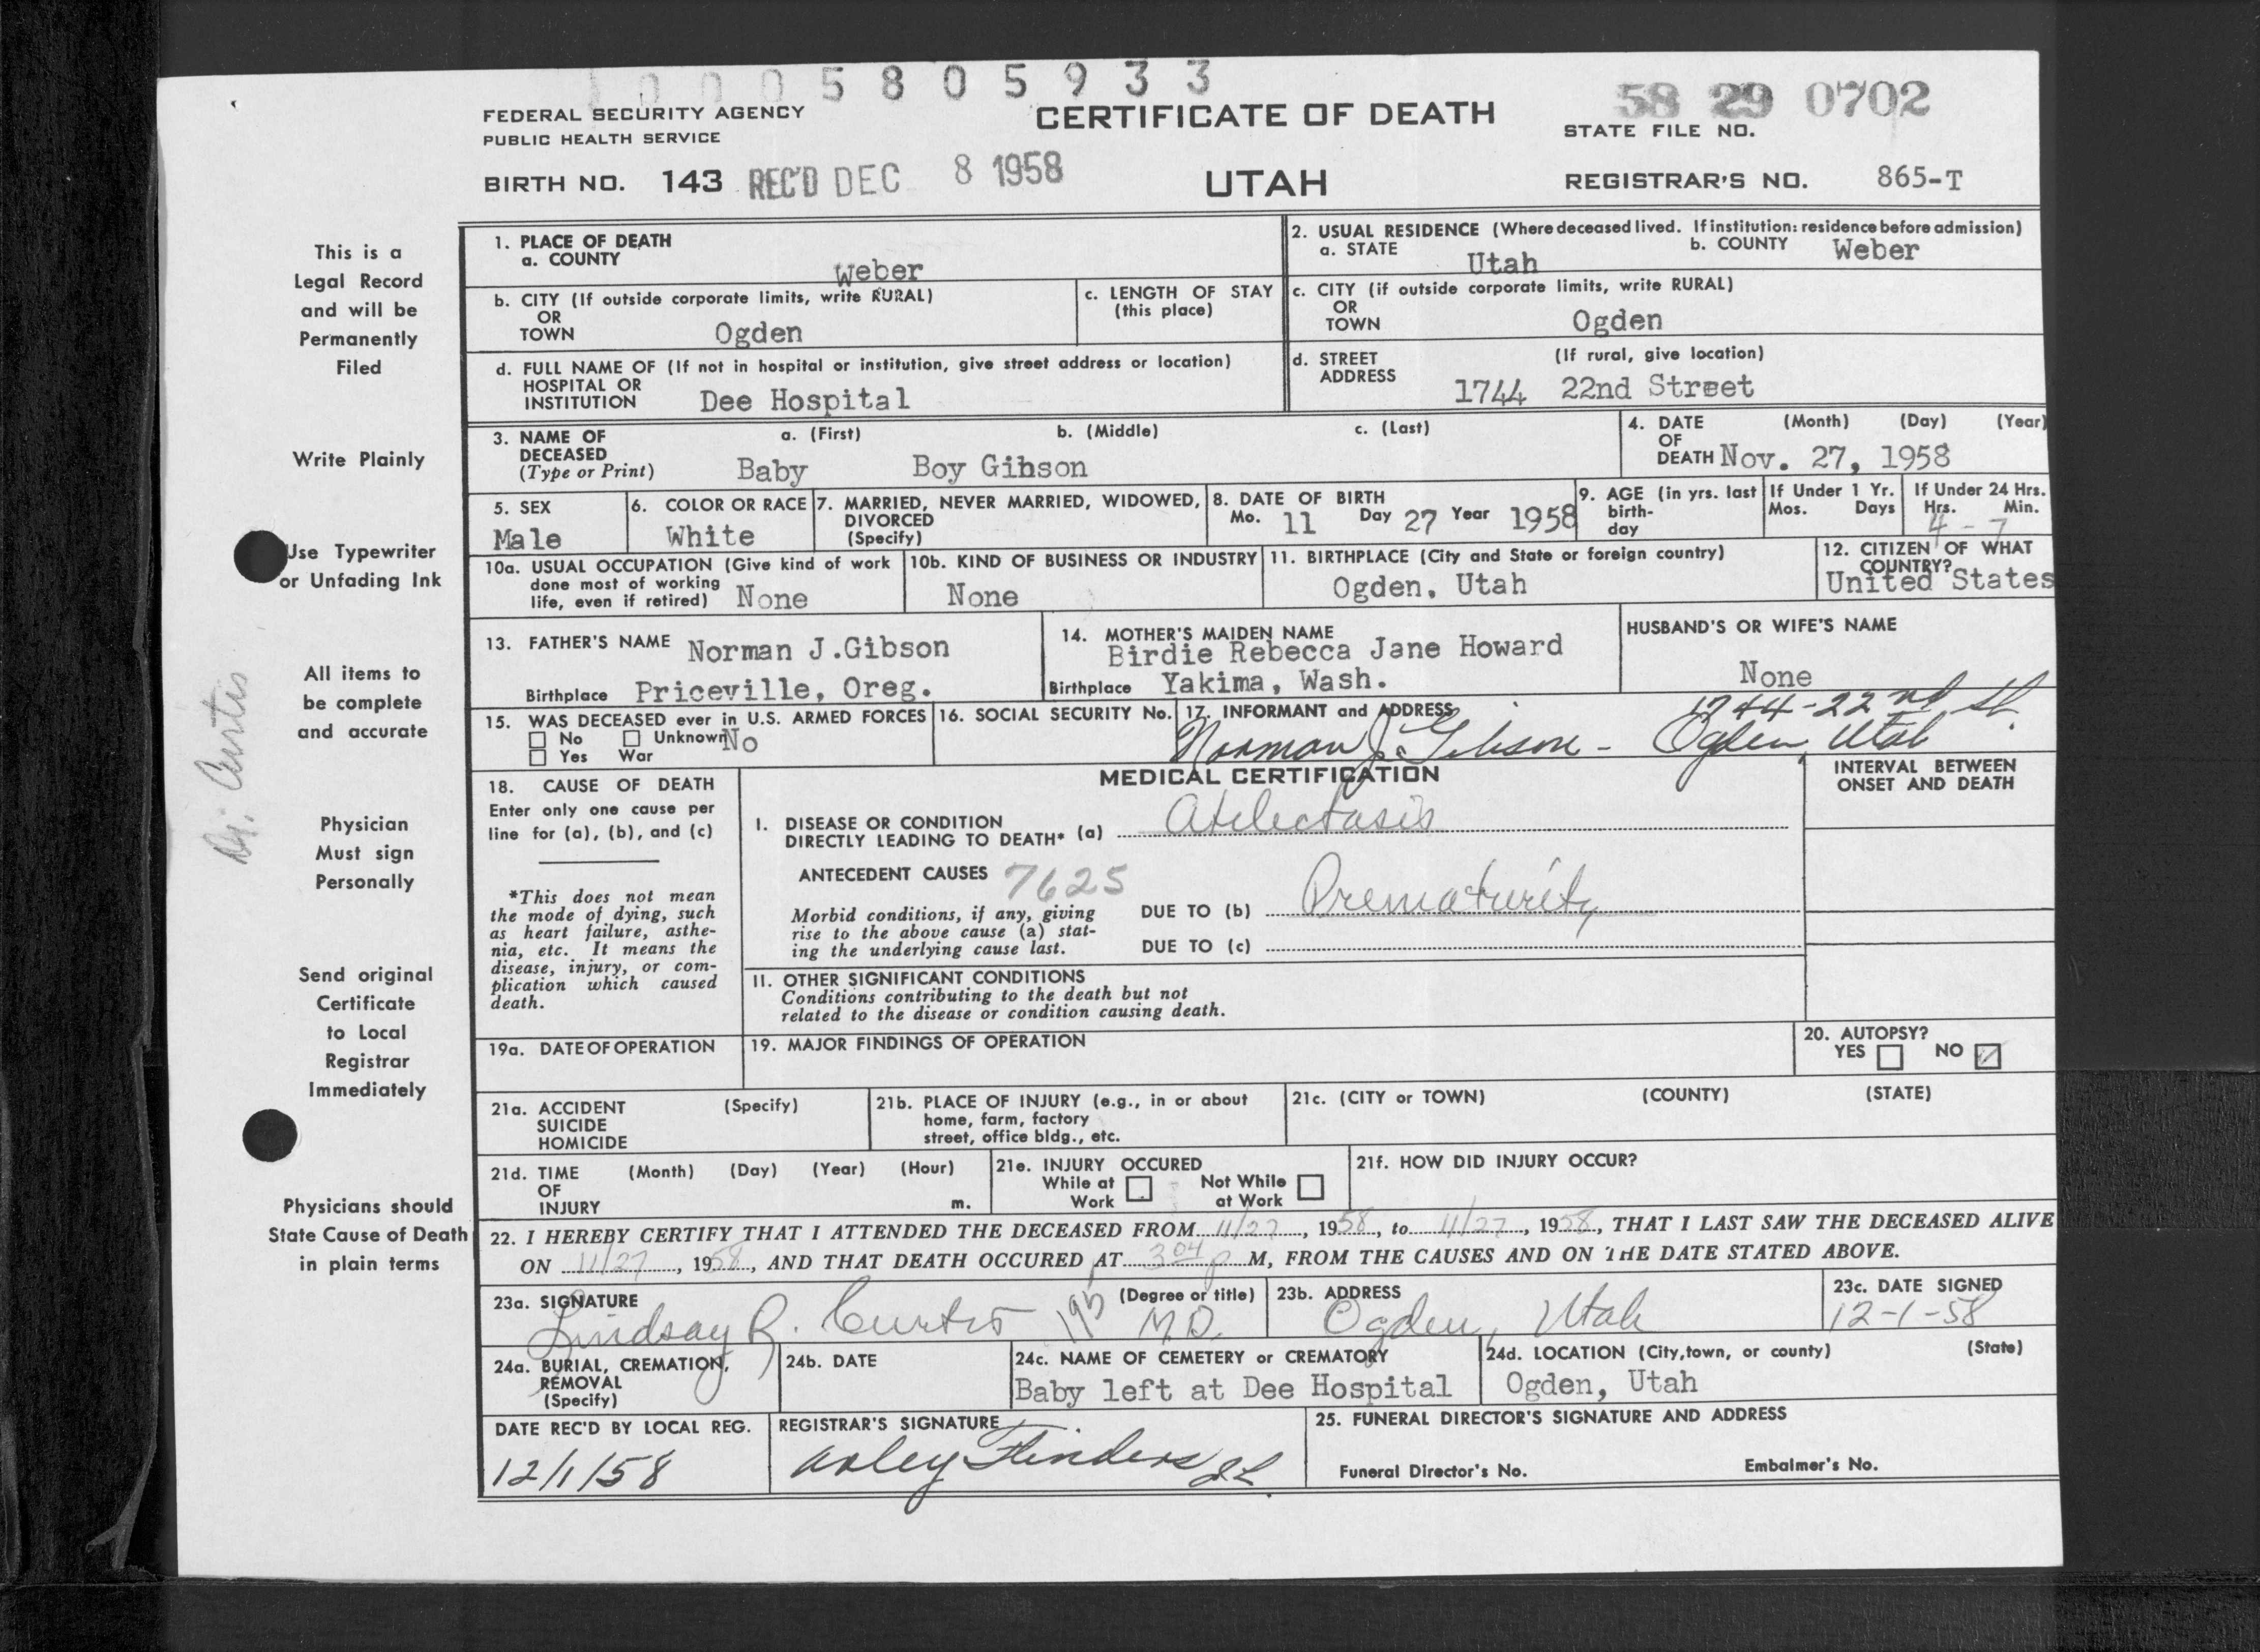 1 0 0 0 5 8 0 5 9 3 3
FEDERAL SECURITY AGENCY
PUBLIC HEALTH SERVICE
CERTIFICATE OF DEATH
58 29 0702
STATE FILE NO.
BIRTH NO. 143 REC'D DEC 8 1958
UTAH
REGISTRAR'S NO. 865-T
This is a
Legal Record
and will be
Permanently
Filed
Write Plainly
Use Typewriter
or Unfading Ink
All items to
be complete
and accurate
Dr. Curtis
Physician
Must sign
Personally
Send original
Certificate
to Local
Registrar
Immediately
Physicians should
State Cause of Death
in plain terms
1. PLACE OF DEATH
a. COUNTY
Weber
2. USUAL RESIDENCE (Where deceased lived. If institution: residence before admission)
a. STATE Utah b. COUNTY Weber
b. CITY (If outside corporate limits, write RURAL)
OR
TOWN Ogden
c. LENGTH OF STAY
(this place)
c. CITY (if outside corporate limits, write RURAL)
OR
TOWN Ogden
d. FULL NAME OF (If not in hospital or institution, give street address or location)
HOSPITAL OR
INSTITUTION Dee Hospital
d. STREET (If rural, give location)
ADDRESS 1744 22nd Street
3. NAME OF a. (First) b. (Middle) c. (Last)
DECEASED
(Type or Print) Baby Boy Gibson
4. DATE (Month) (Day) (Year)
OF
DEATH Nov. 27, 1958
5. SEX
Male
6. COLOR OR RACE
White
7. MARRIED, NEVER MARRIED, WIDOWED,
DIVORCED
(Specify)
8. DATE OF BIRTH
Mo. 11 Day 27 Year 1958
9. AGE (in yrs. last
birth-
day
If Under 1 Yr.
Mos. Days
If Under 24 Hrs.
Hrs. Min.
4 - 7
10a. USUAL OCCUPATION (Give kind of work
done most of working
life, even if retired) None
10b. KIND OF BUSINESS OR INDUSTRY
None
11. BIRTHPLACE (City and State or foreign country)
Ogden, Utah
12. CITIZEN OF WHAT
COUNTRY?
United States
13. FATHER'S NAME Norman J.Gibson
Birthplace Priceville, Oreg.
14. MOTHER'S MAIDEN NAME
Birdie Rebecca Jane Howard
Birthplace Yakima, Wash.
HUSBAND'S OR WIFE'S NAME
None
15. WAS DECEASED ever in U.S. ARMED FORCES
No Unknown No
Yes War
16. SOCIAL SECURITY No.
17. INFORMANT and ADDRESS 1744-22nd St.
Norman J. Gibson - Ogden, Utah
18. CAUSE OF DEATH
Enter only one cause per
line for (a), (b), and (c)
*This does not mean
the mode of dying, such
as heart failure, asthe-
nia, etc. It means the
disease, injury, or com-
plication which caused
death.
MEDICAL CERTIFICATION
INTERVAL BETWEEN
ONSET AND DEATH
I. DISEASE OR CONDITION
DIRECTLY LEADING TO DEATH* (a) Atelectasis
ANTECEDENT CAUSES 7625
Morbid conditions, if any, giving
rise to the above cause (a) stat-
ing the underlying cause last.
DUE TO (b) Prematurity
DUE TO (c)
II. OTHER SIGNIFICANT CONDITIONS
Conditions contributing to the death but not
related to the disease or condition causing death.
19a. DATE OF OPERATION
19. MAJOR FINDINGS OF OPERATION
20. AUTOPSY?
YES NO
21a. ACCIDENT (Specify)
SUICIDE
HOMICIDE
21b. PLACE OF INJURY (e.g., in or about
home, farm, factory
street, office bldg., etc.
21c. (CITY or TOWN) (COUNTY) (STATE)
21d. TIME (Month) (Day) (Year) (Hour)
OF
INJURY m.
21e. INJURY OCCURED
While at Not While
Work at Work
21f. HOW DID INJURY OCCUR?
22. I HEREBY CERTIFY THAT I ATTENDED THE DECEASED FROM 11/27, 1958, to 11/27, 1958, THAT I LAST SAW THE DECEASED ALIVE
ON 11/27, 1958, AND THAT DEATH OCCURED AT 3 04 p M, FROM THE CAUSES AND ON THE DATE STATED ABOVE.
23a. SIGNATURE (Degree or title)
Lindsay R. Curtis M.D.
23b. ADDRESS
Ogden, Utah
23c. DATE SIGNED
12-1-58
24a. BURIAL, CREMATION,
REMOVAL
(Specify)
24b. DATE
24c. NAME OF CEMETERY or CREMATORY
Baby left at Dee Hospital
24d. LOCATION (City, town, or county) (State)
Ogden, Utah
DATE REC'D BY LOCAL REG.
12/1/58
REGISTRAR'S SIGNATURE
Flinders
25. FUNERAL DIRECTOR'S SIGNATURE AND ADDRESS
Funeral Director's No. Embalmer's No.